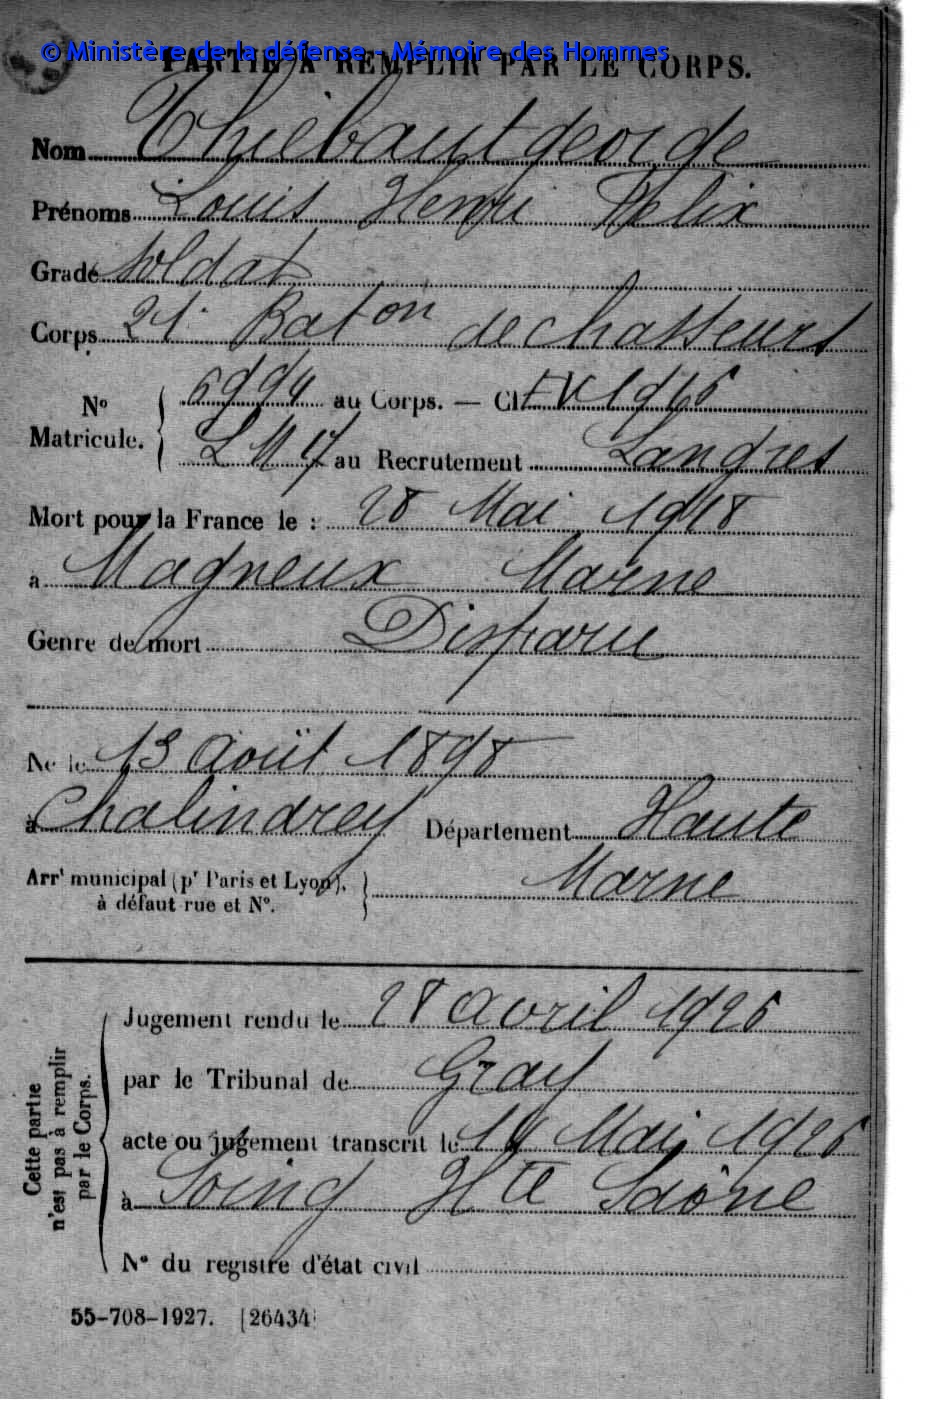 © Ministère de la défense - Mémoire des Hommes
PARTIE A REMPLIR PAR LE CORPS.
Nom Thiébautgeorge
Prénoms Louis Henri Félix
Grade Soldat
Corps 21e Baton de chasseurs
No 6994 au Corps. — Cl. EV 1916
Matricule. LM 17 au Recrutement Langres
Mort pour la France le : 28 Mai 1918
a Magneux Marne
Genre de mort Disparu
Né le 13 Août 1898
à Chalindrey Département Haute
Arrt municipal (pr Paris et Lyon), Marne
à défaut rue et No.
Cette partie
n'est pas à remplir
par le Corps.
Jugement rendu le 28 Avril 1926
par le Tribunal de Gray
acte ou jugement transcrit le 14 Mai 1926
à Soing Hte Saône
No du registre d'état civil
55-708-1927. [26434]